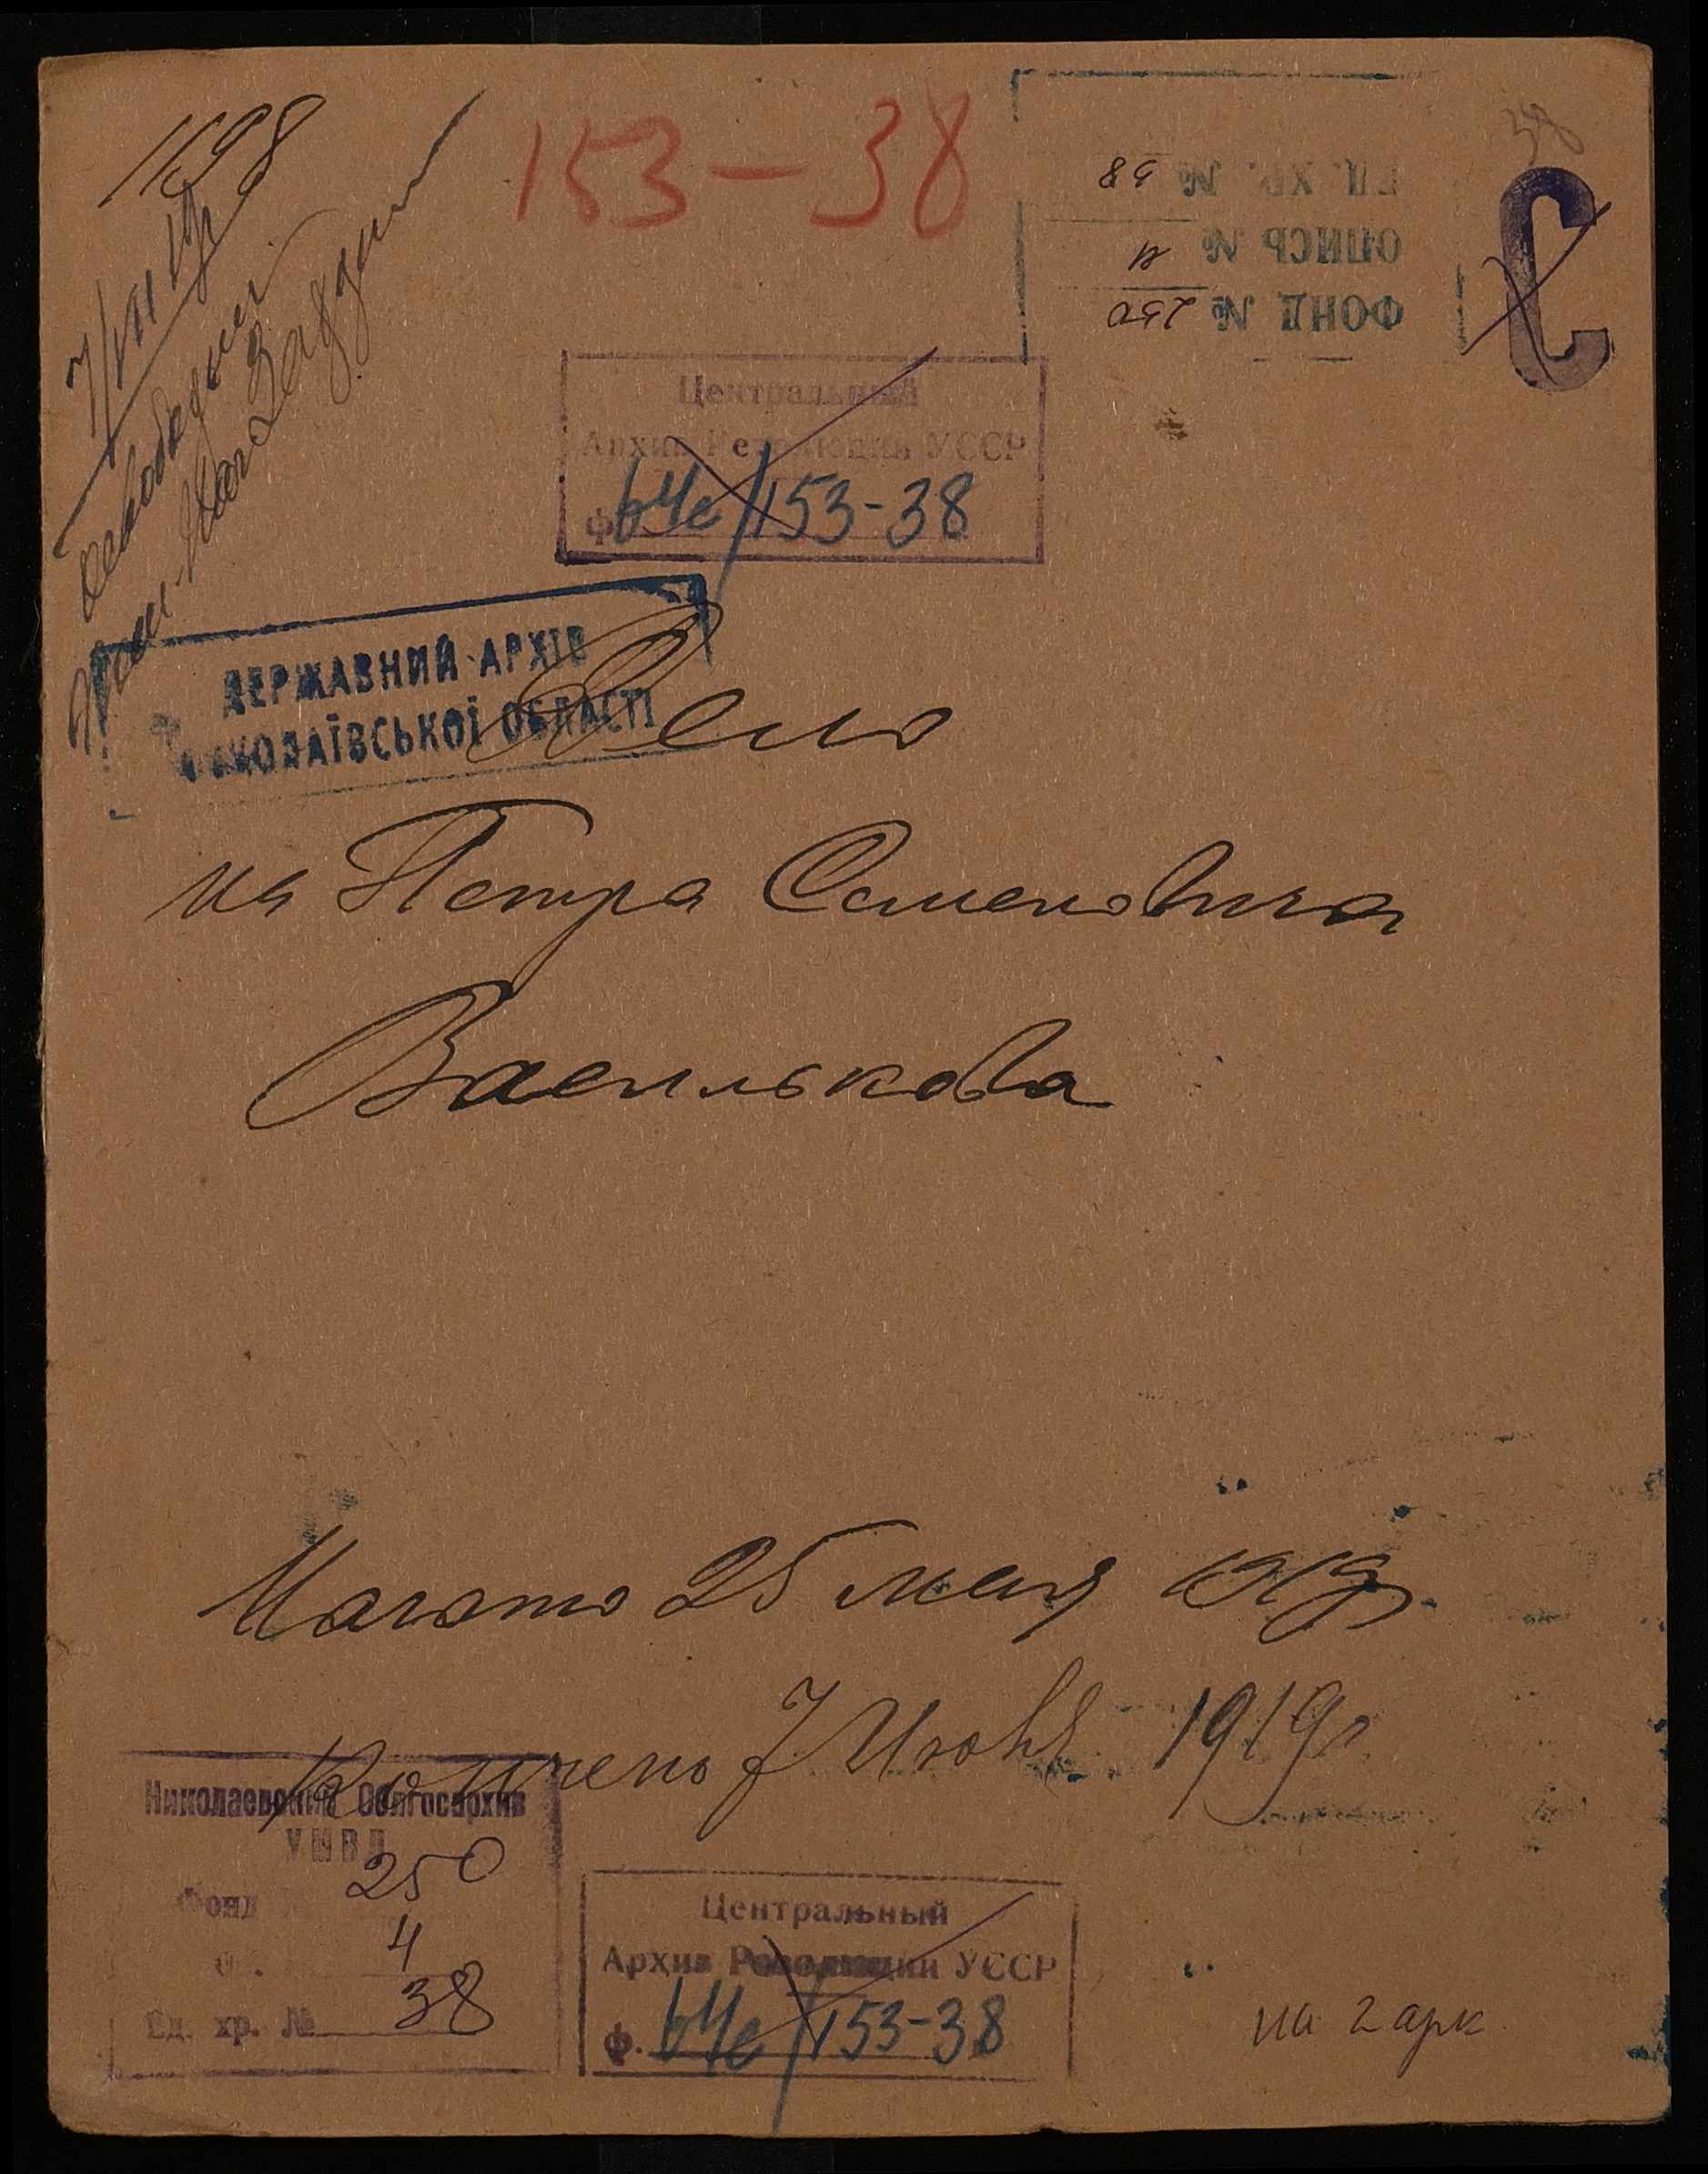 1698
7/VII 19
153-38
38
ЕД. ХР. № 38
ОПИСЬ № 4
ФОНД № 250
С
Центральный
Архив Революции УССР
ф. 64с/153-38
ДЕРЖАВНИЙ АРХІВ
МИКОЛАЇВСЬКОЇ ОБЛАСТІ
Дело
на Петра Семеновича
Василькова
Начато 25 мая 1919 г.
Кончено 7 Июня 1919 г.
Николаевский Облгосархив
УМВД
Фонд 250
4
Ед. хр. № 38
Центральный
Архив Революции УССР
ф. 64с/153-38
на 2 арк